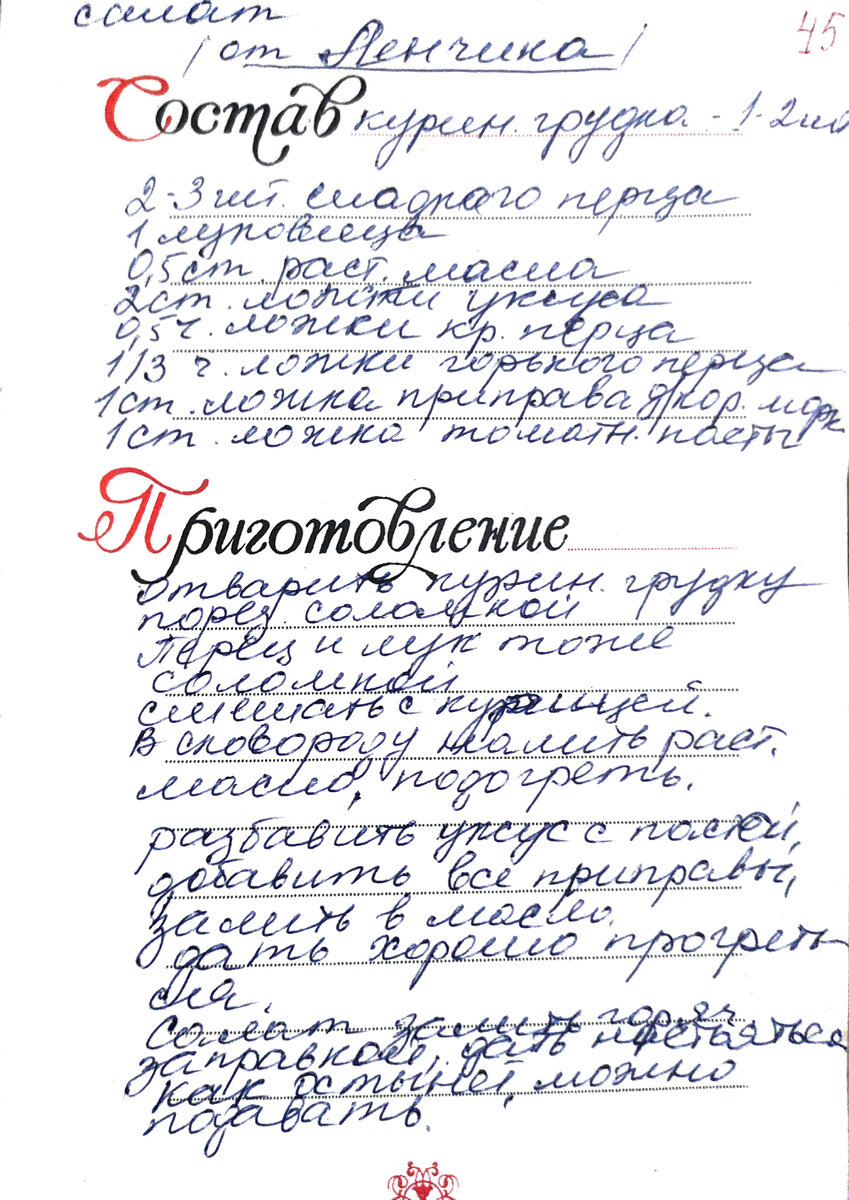 салат
45
/от Ленчика/
Состав курин. грудка - 1-2 шт
2-3 шт. сладкого перца
1 луковица
0,5 ст. раст. масла
2 ст. ложки уксуса
0,5 ч. ложки кр. перца
1/3 ч. ложки горького перца
1 ст. ложка приправа д/кор. морк
1 ст. ложка томатн. пасты
Приготовление
отварить курин. грудку
порез. соломкой
Перец и лук тоже
соломкой
смешать с курицей.
В сковороду налить раст.
масло, подогреть.
разбавить уксус с пастой,
добавить все приправы,
залить в масло.
дать хорошо прогреть-
ся.
салат залить горяч.
заправкой, дать настояться
как остынет, можно
подавать.